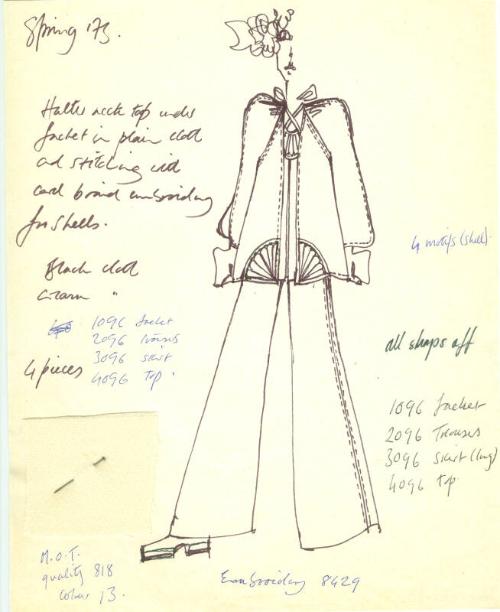 Spring '73.
Halter neck top under
Jacket in plain cloth
and stitching with
cord braid embroidery
for shells.
Black cloth
Cream "
1096 Jacket
2096 Trousers
3096 skirt
4096 Top.
4 pieces
4 motifs (shell).
all shops off
1096 Jacket
2096 Trousers
3096 skirt (long)
4096 top.
M.O.T.
quality 818
colour 13.
Embroidery 8429